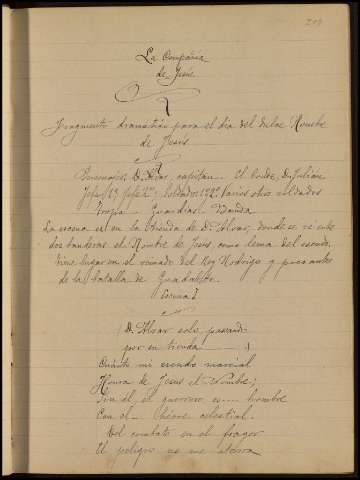 La Compañia
de Jesús
Fragmento dramatico para el dia del dulce Nombre
de Jesús
Personajes, D. Alvar, capitan. El Conde D. Julian
Jefe 1º Jefe 2º Soldados 1º 2º Varios otros soldados
tropa Guardias Banda
La escena es en la tienda de D. Alvar, donde se ve entre
dos banderas el Nombre de Jesús, como lema del escudo.
Tiene lugar en el reinado del Rey Rodrigo y poco antes
de la batalla de Guadalete.
Escena I
(D. Alvar solo paseando
por su tienda )
Cuánto mi escudo marcial
Honra de Jesus el Nombre;
Sin él, el guerrero es hombre
Con él heroe celestial.
Del combate en el fragor
El peligro no me aterra